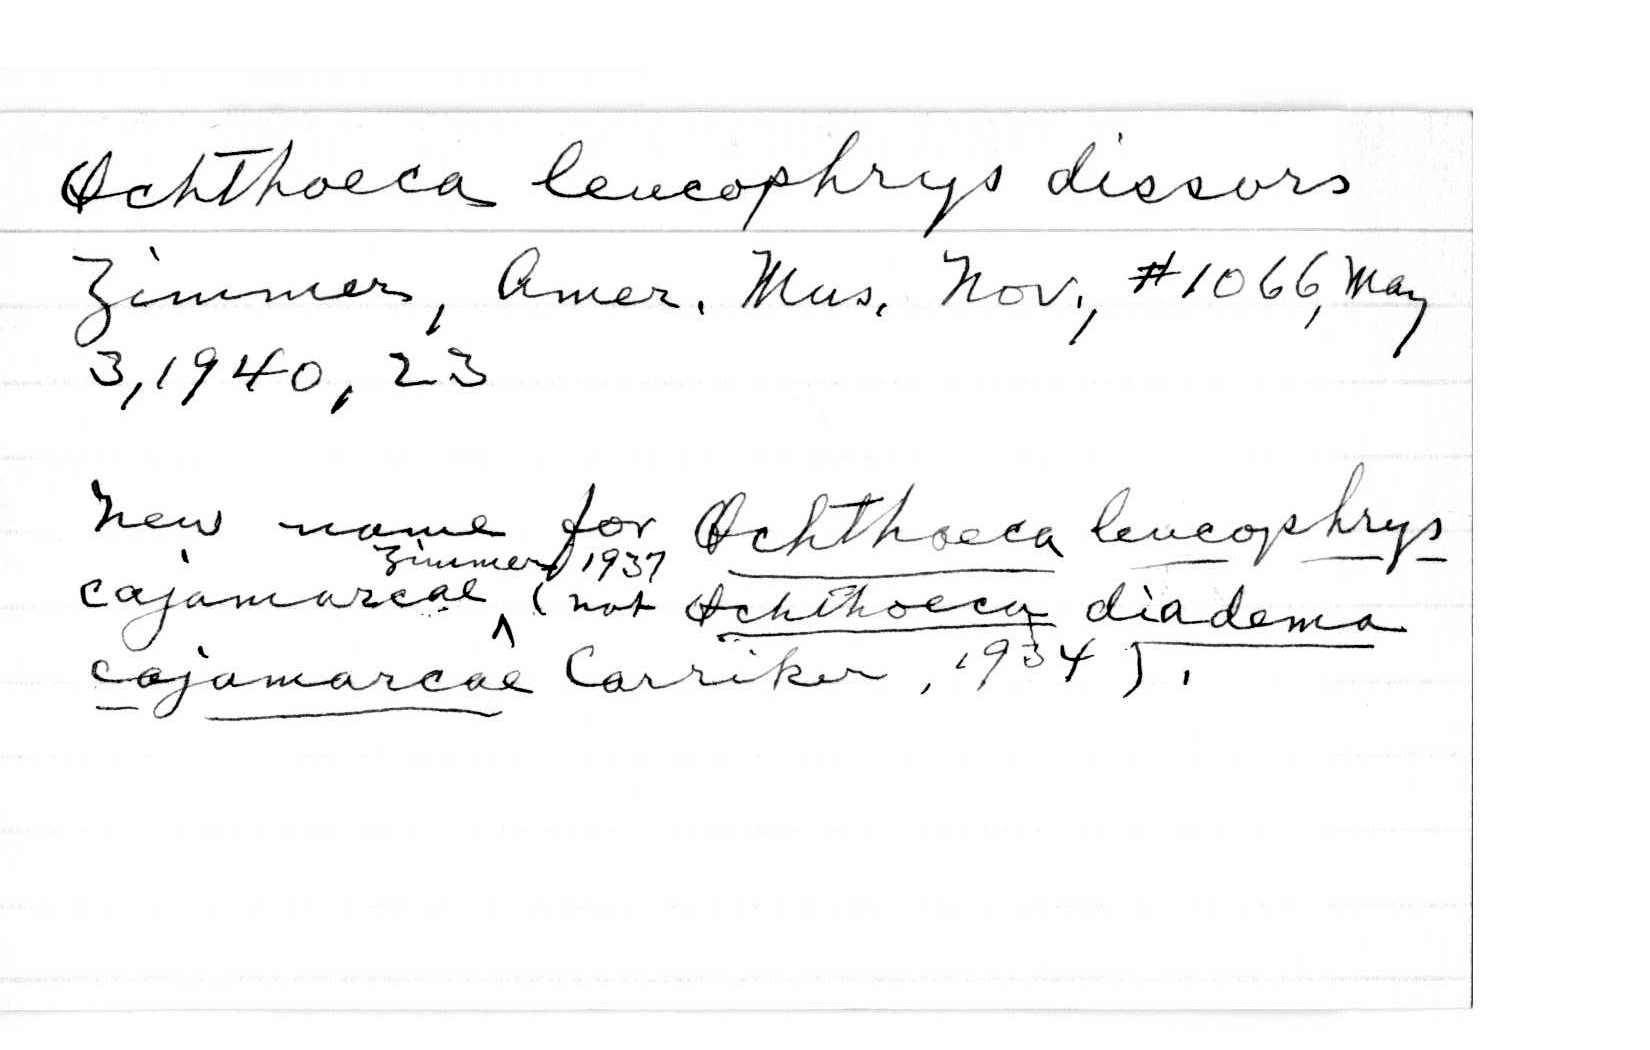 Ochthoeca leucophrys dissors
Zimmer, Amer. Mus. Nov., #1066, May
3, 1940, 23
New name for Ochthoeca leucophrys
Zimmer, 1937
cajamarcae (not Ochthoeca diadema
cajamarcae Carriker, 1934).